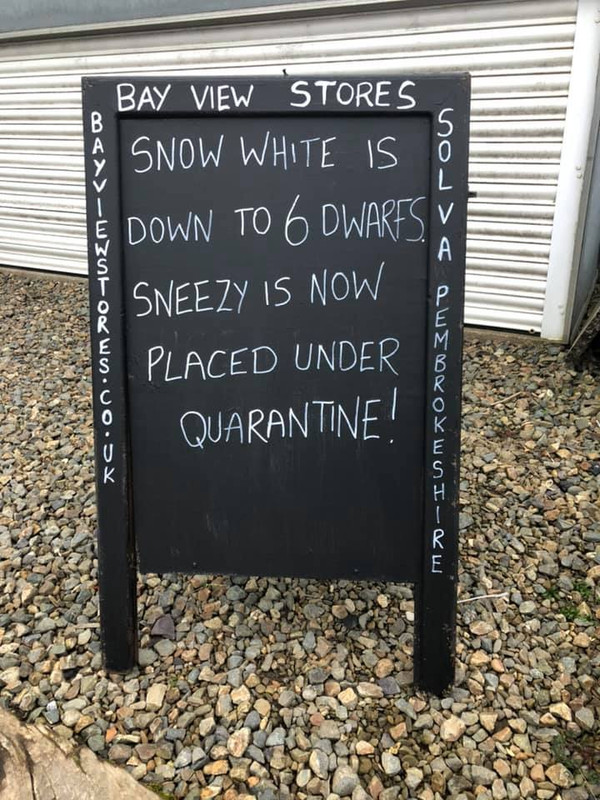 BAY VIEW STORES
SNOW WHITE IS
DOWN TO 6 DWARFS.
SNEEZY IS NOW
PLACED UNDER
QUARANTINE!
BAYVIEWSTORES.CO.UK
SOLVA PEMBROKESHIRE